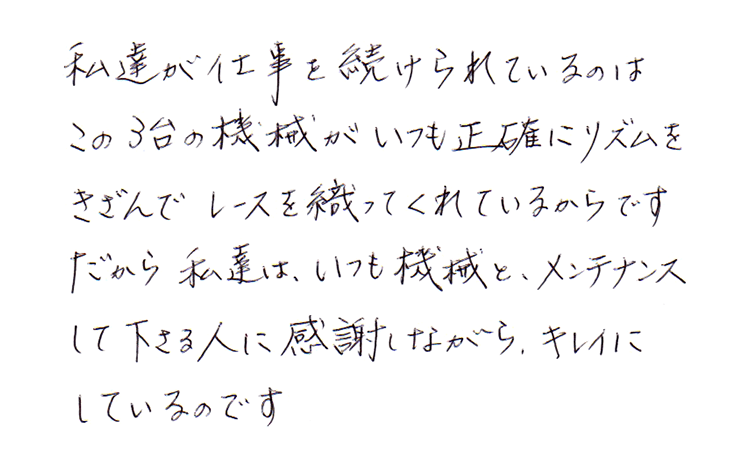 私達が仕事を続けられているのは
この3台の機械がいつも正確にリズムを
きざんで レースを織ってくれているからです
だから 私達は、いつも機械と、メンテナンス
して下さる人に感謝しながら、キレイに
しているのです